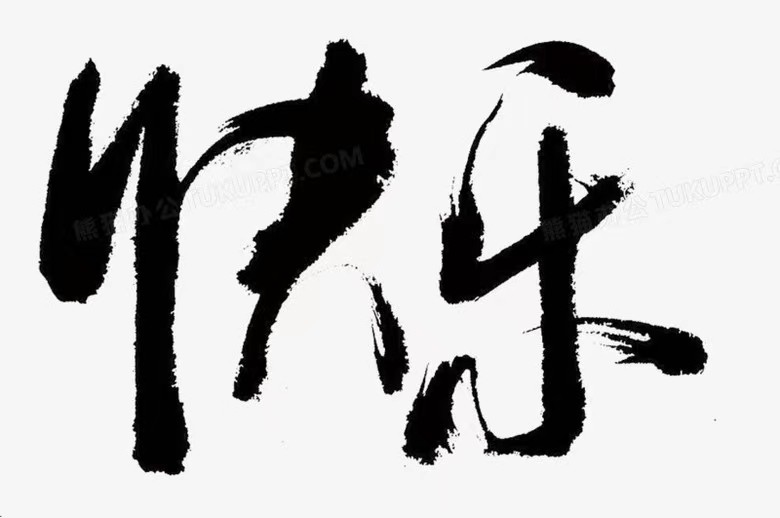 快乐
熊猫办公 TUKUPPT.COM
熊猫办公 TUKUPPT.COM